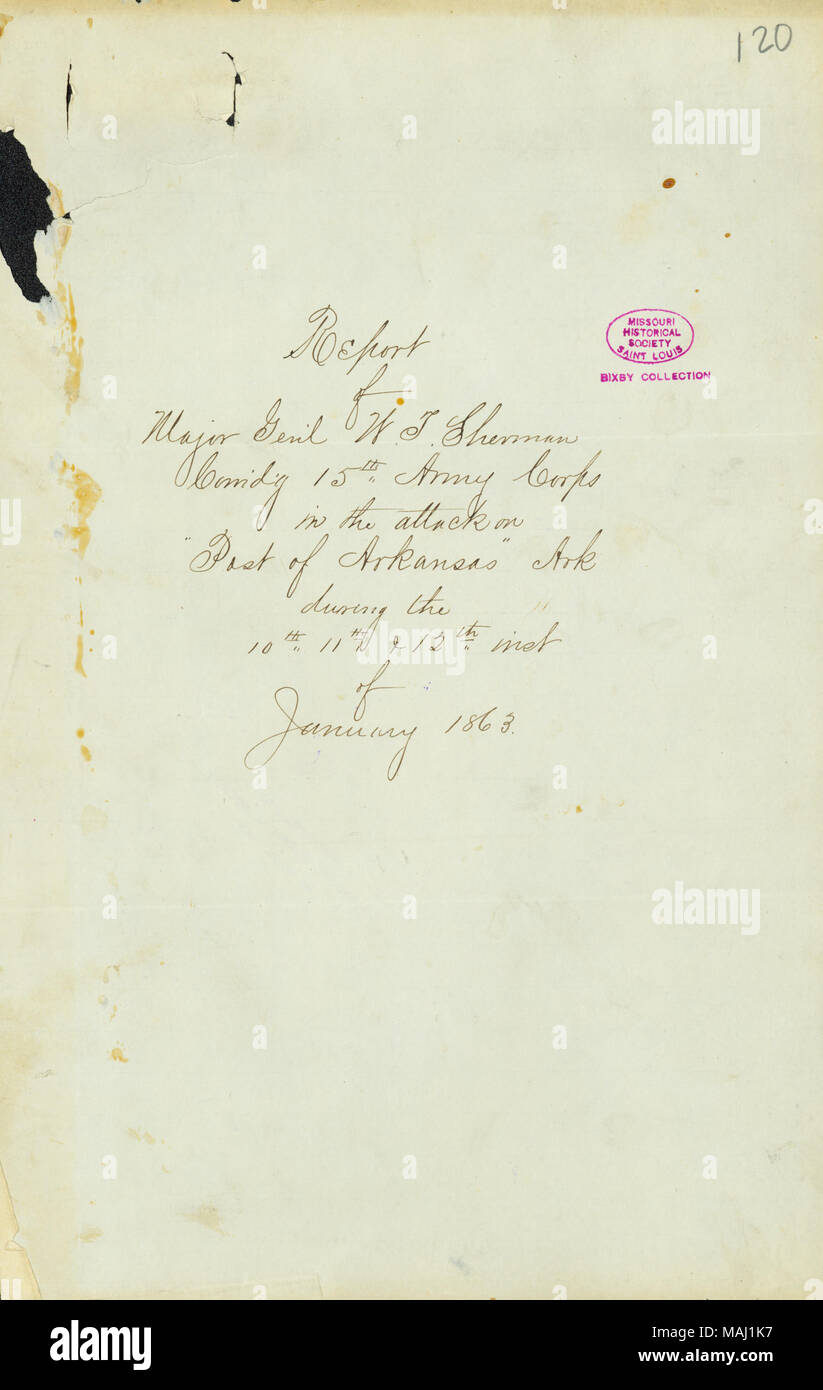 120
MISSOURI
HISTORICAL
SOCIETY
SAINT LOUIS
BIXBY COLLECTION
Report
of
Major Genl W. T. Sherman
Comd'g 15th Army Corps
in the attack on
"Post of Arkansas" Ark
during the "
10th 11th & 12th inst
of
January 1863.
alamy
alamy
Image ID: MAJ1K7
www.alamy.com